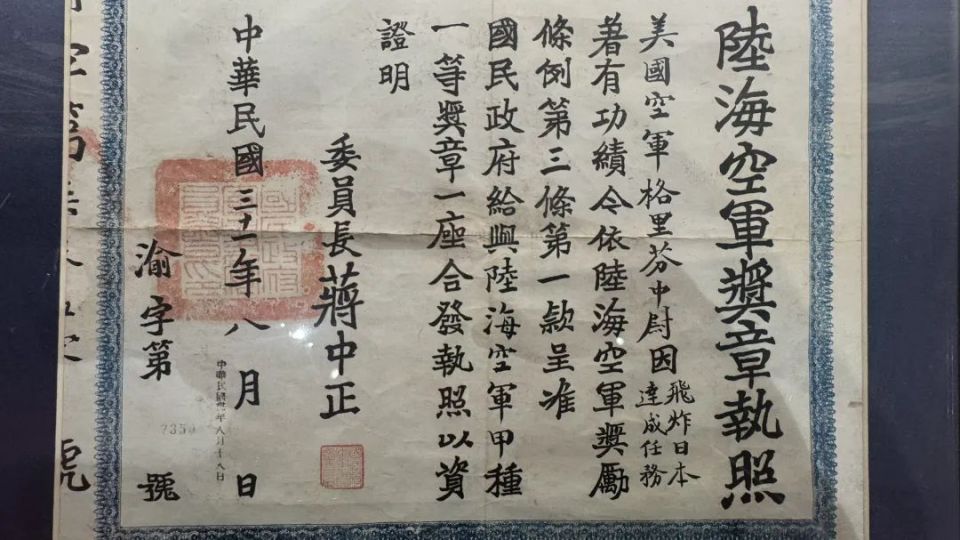 陸海空軍獎章執照
美國空軍格里芬中尉因飛炸日本達成任務
著有功績令依陸海空軍獎勵
條例第三條第一款呈准
國民政府給與陸海空軍甲種
一等獎章一座合發執照以資
證明
委員長蔣中正
中華民國三十一年八月日
渝字第號